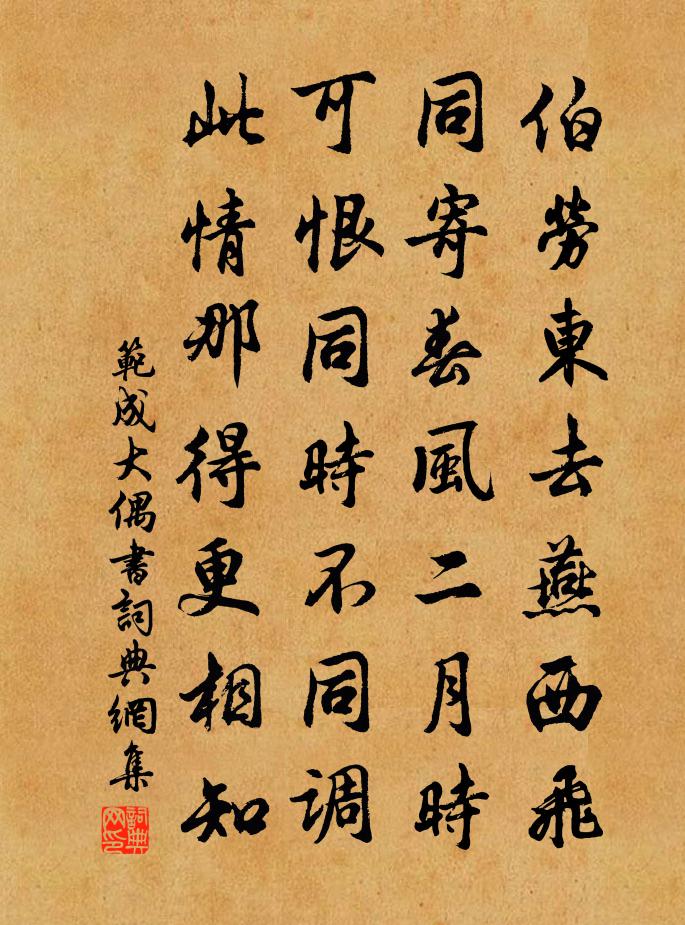 伯勞東去燕西飛
同寄春風二月時
可恨同時不同調
此情那得更相知
範成大偶書詞典網集
詞典網印